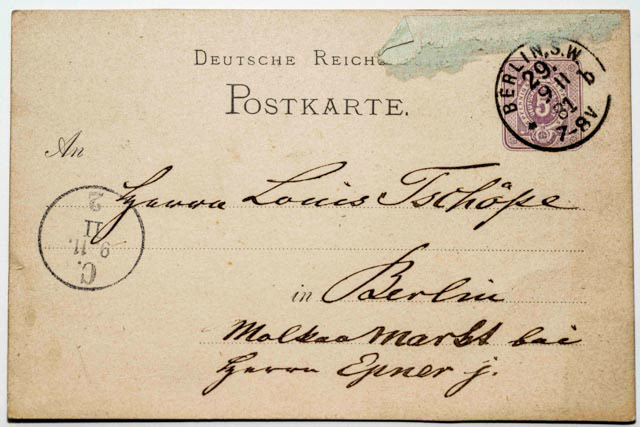 DEUTSCHE REICHS
POSTKARTE.
BERLIN, S.W.
29.
b
9 11
81
7-8V
5
An
Herrn Louis Tschöpe
2
II
9.11.
C.
in Berlin
Molkaa Markt bei
Herrn Epner j.